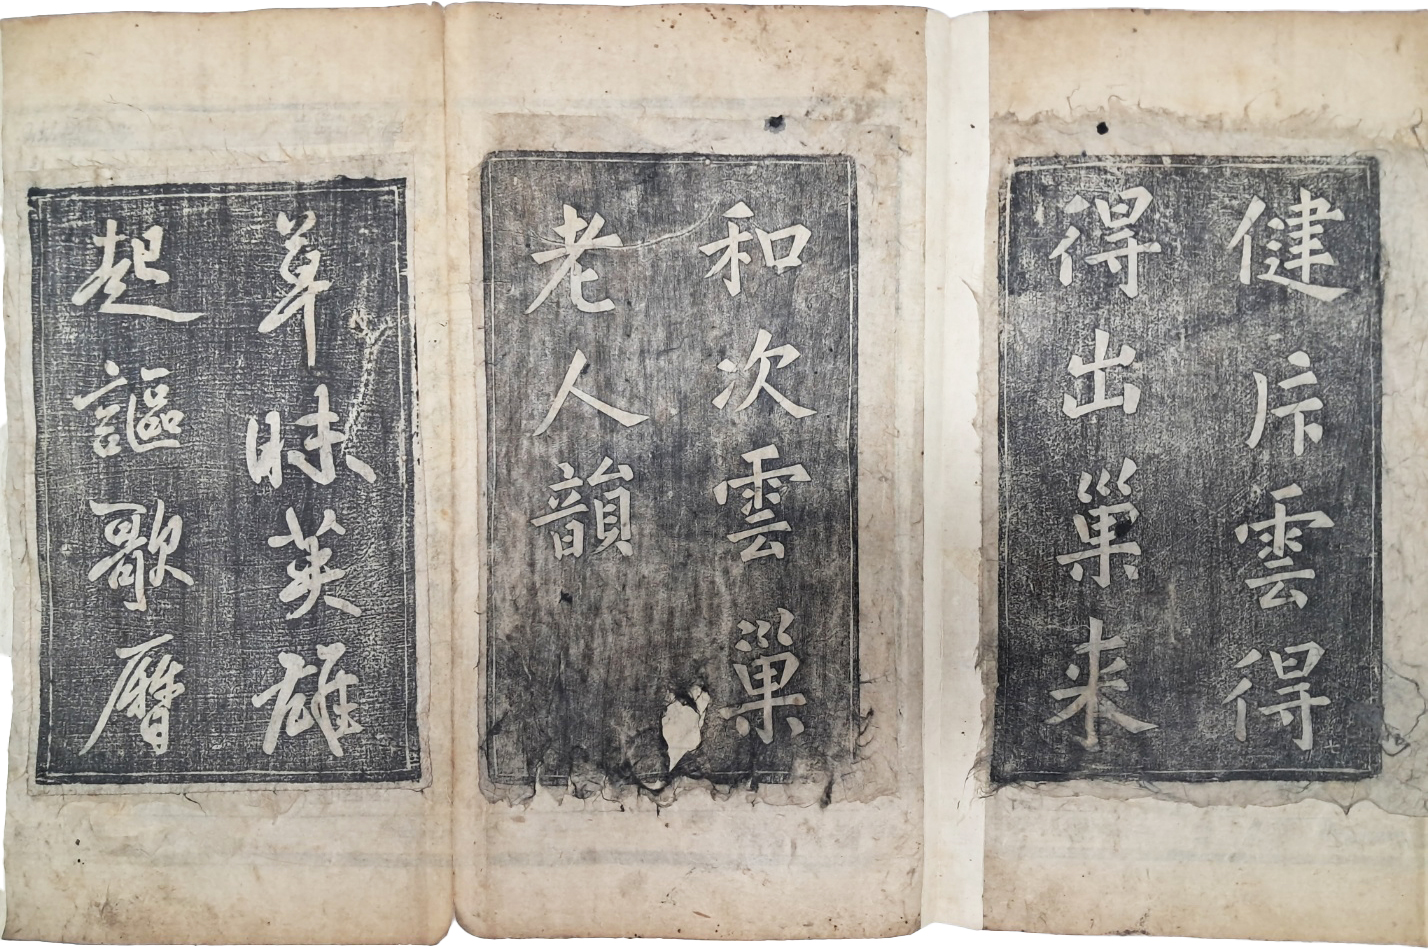 健斥雲得
七
得出巢来
和次雲巢
老人韻
草昧英雄
起謳歌曆